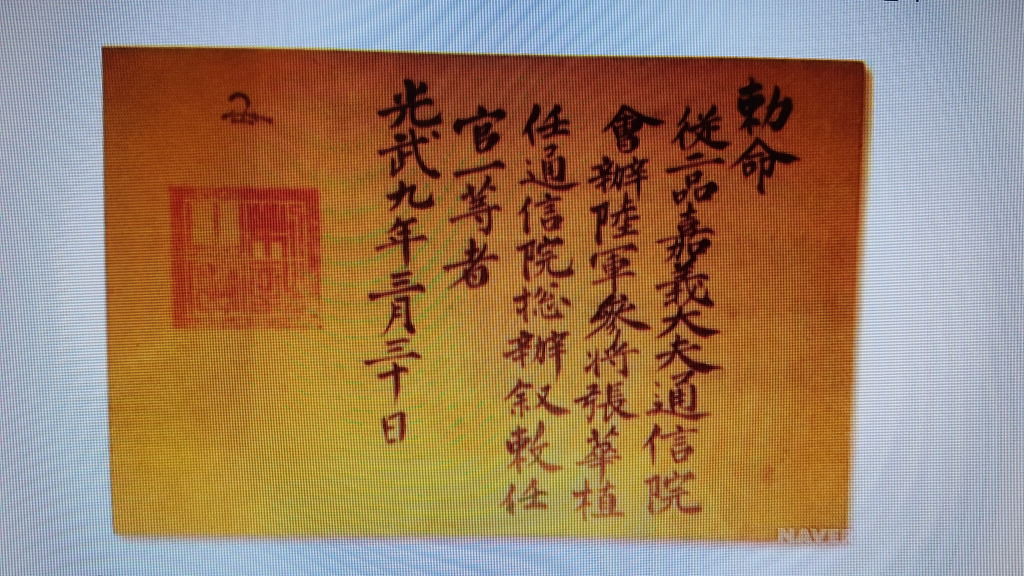 勅命
從二品嘉義大夫通信院
會辦陸軍參將張華植
任通信院捴辦叙敕任
官一等者
光武九年三月三十日
NAVER